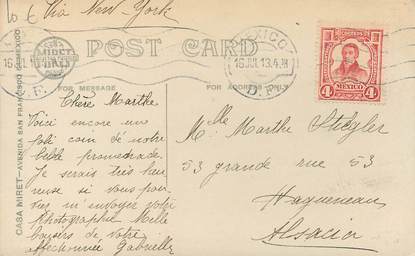 10 €
Via New-York
POST CARD
MEXICO
16 JUL 13.4
D.F.
MEXICO
4 4
FOR MESSAGE
FOR ADDRESS ONLY
CASA MIRET—AVENIDA SAN FRANCISCO
Chère Marthe
Voici encore un
joli coin de notre
belle promenade.
Je serais très heu-
reuse si vous pou-
viez m'envoyer votre
Photographie Mille
baisers de votre
affectionnée Gabrielle
Mlle Marthe
53 grande rue 53
Haguenau
Alsacia